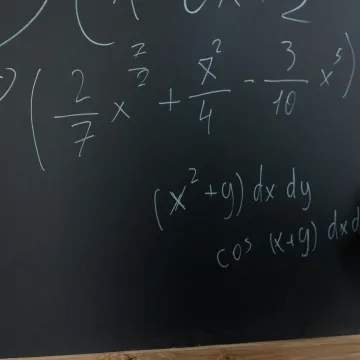 (2/7 x^(7/2) + x^2/4 - 3/10 x^5)
(x^2 + y) dx dy
cos (x+y) dx